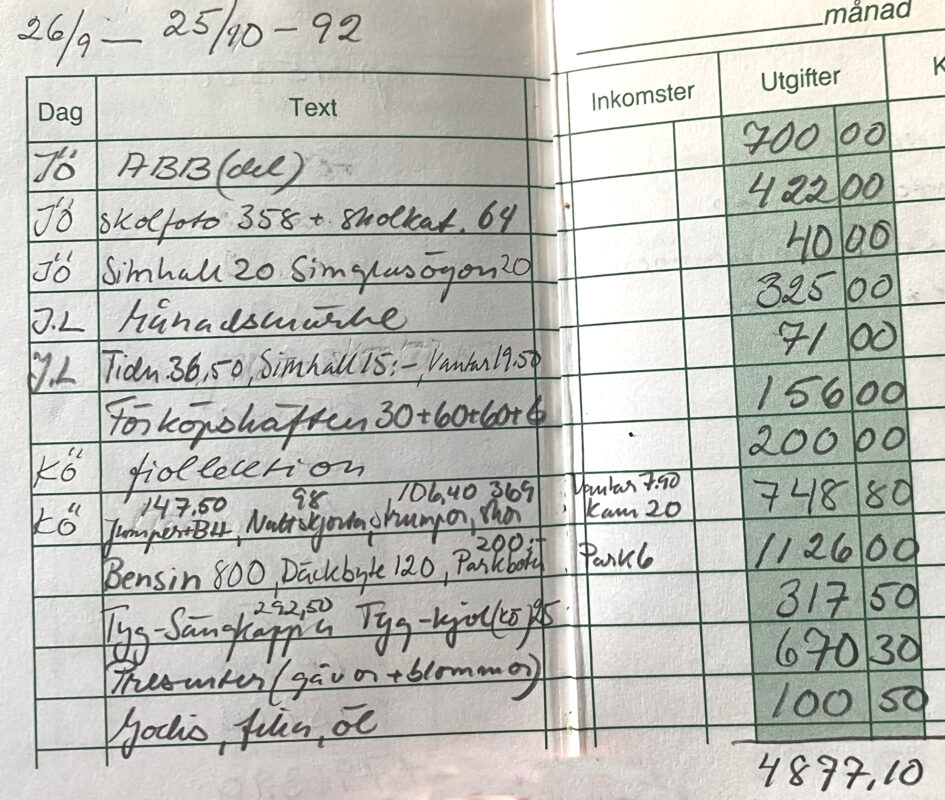 26/9 – 25/10 – 92
månad
Dag Text Inkomster Utgifter K
JÖ ABB (del) 700 00
JÖ Skolfoto 358 + Skolkat. 64 422 00
JÖ Simhall 20 Simglasögon 20 40 00
J.L Månadsmärke 325 00
J.L Tidn 36,50, Simhall 15:-, Vantar 19.50 71 00
Förköpshäften 30+60+60+6 156 00
KÖ 200 00
147,50 98 106,40 369 Vantar 7.90
KÖ Jumper+BH, Nattskjorta, strumpor, skor Kam 20 748 80
200:-
Bensin 800, Däckbyte 120, Parkböter Park 6 1126 00
292,50
Tyg-Sängkappa Tyg-kjol (KÖ) 25 317 50
Presenter (gåvor + blommor) 670 30
Godis, film, öl 100 50
4877,10